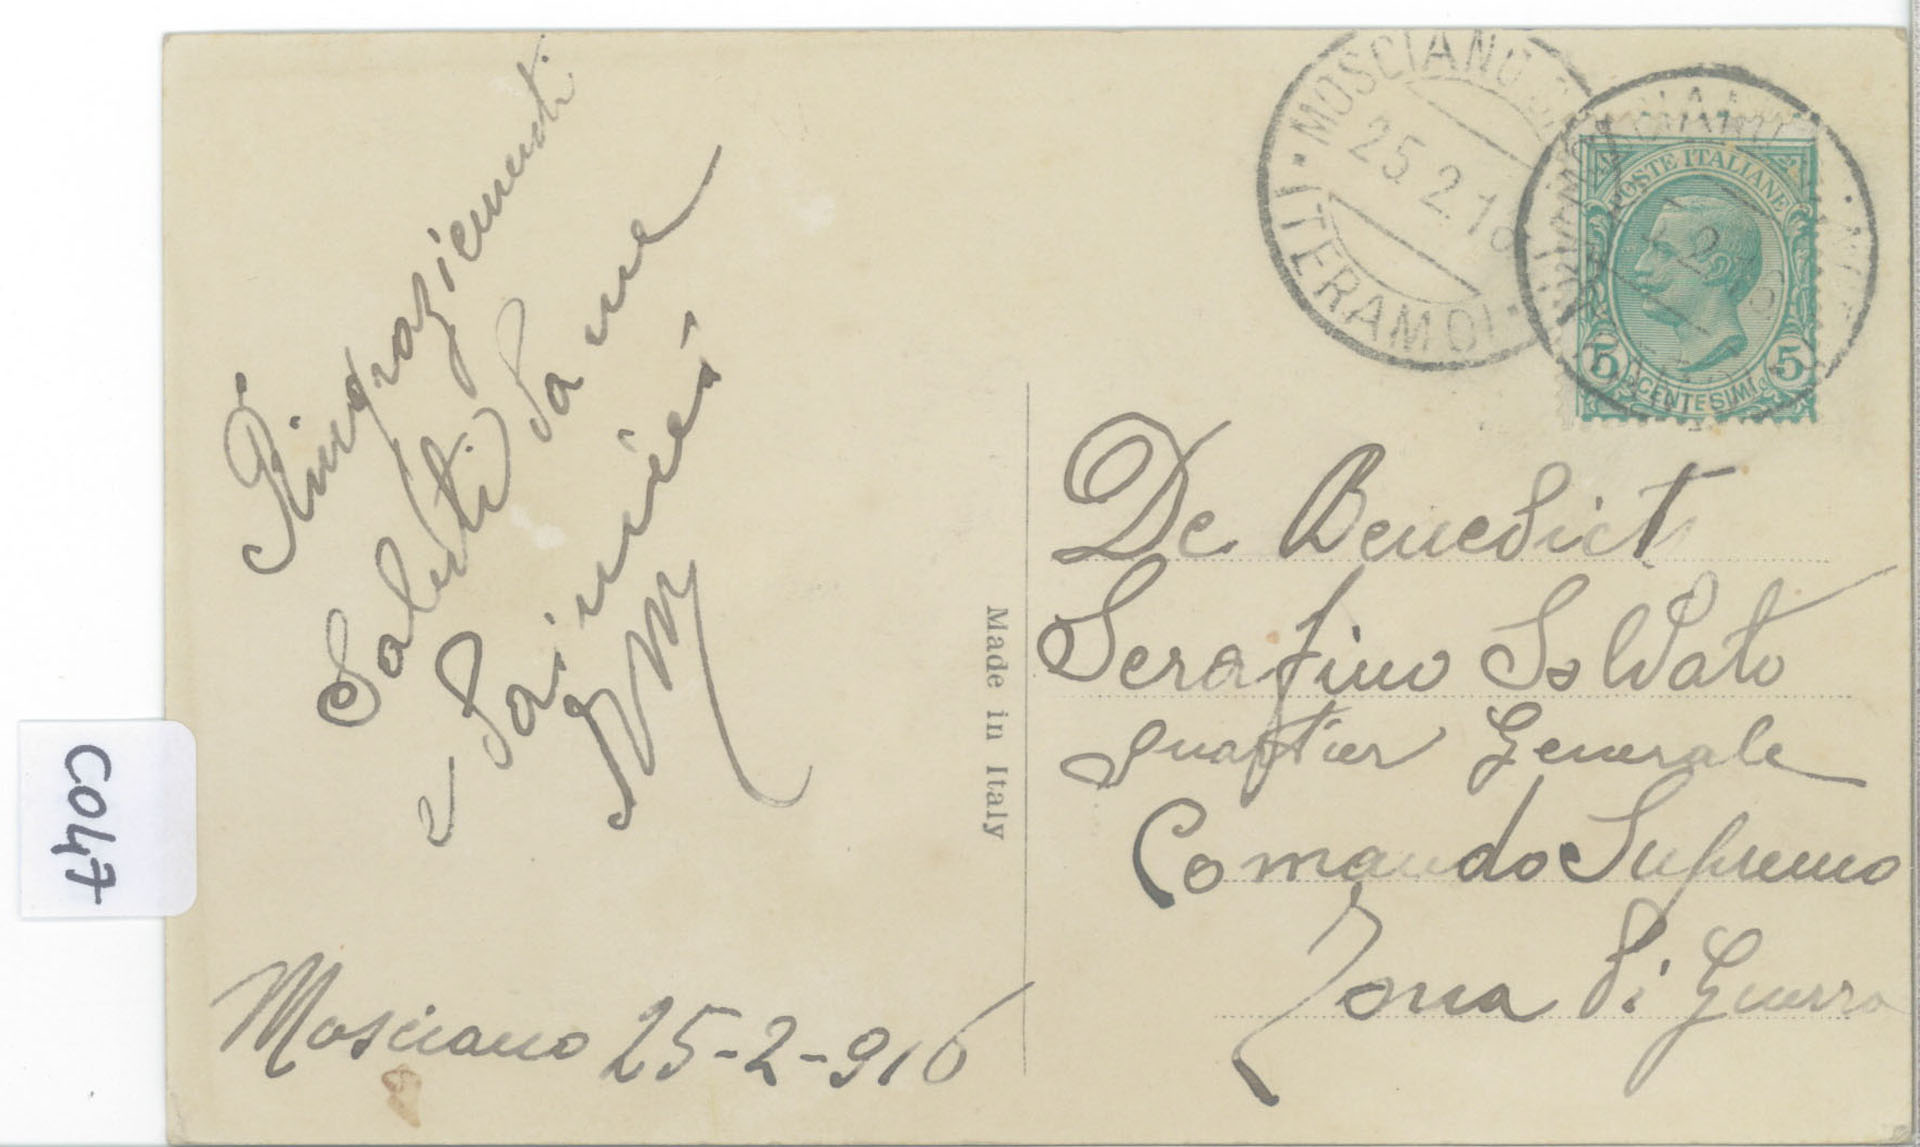 Ringraziamenti
Saluti da me
e da miei
Mosciano 25-2-916
Made in Italy
MOSCIANO
25.2.16
(TERAMO)
POSTE ITALIANE
5 CENTESIMI 5
De Benedict
Serafino Soldato
quartier Generale
Comando Supremo
Zona di Guerra
C047